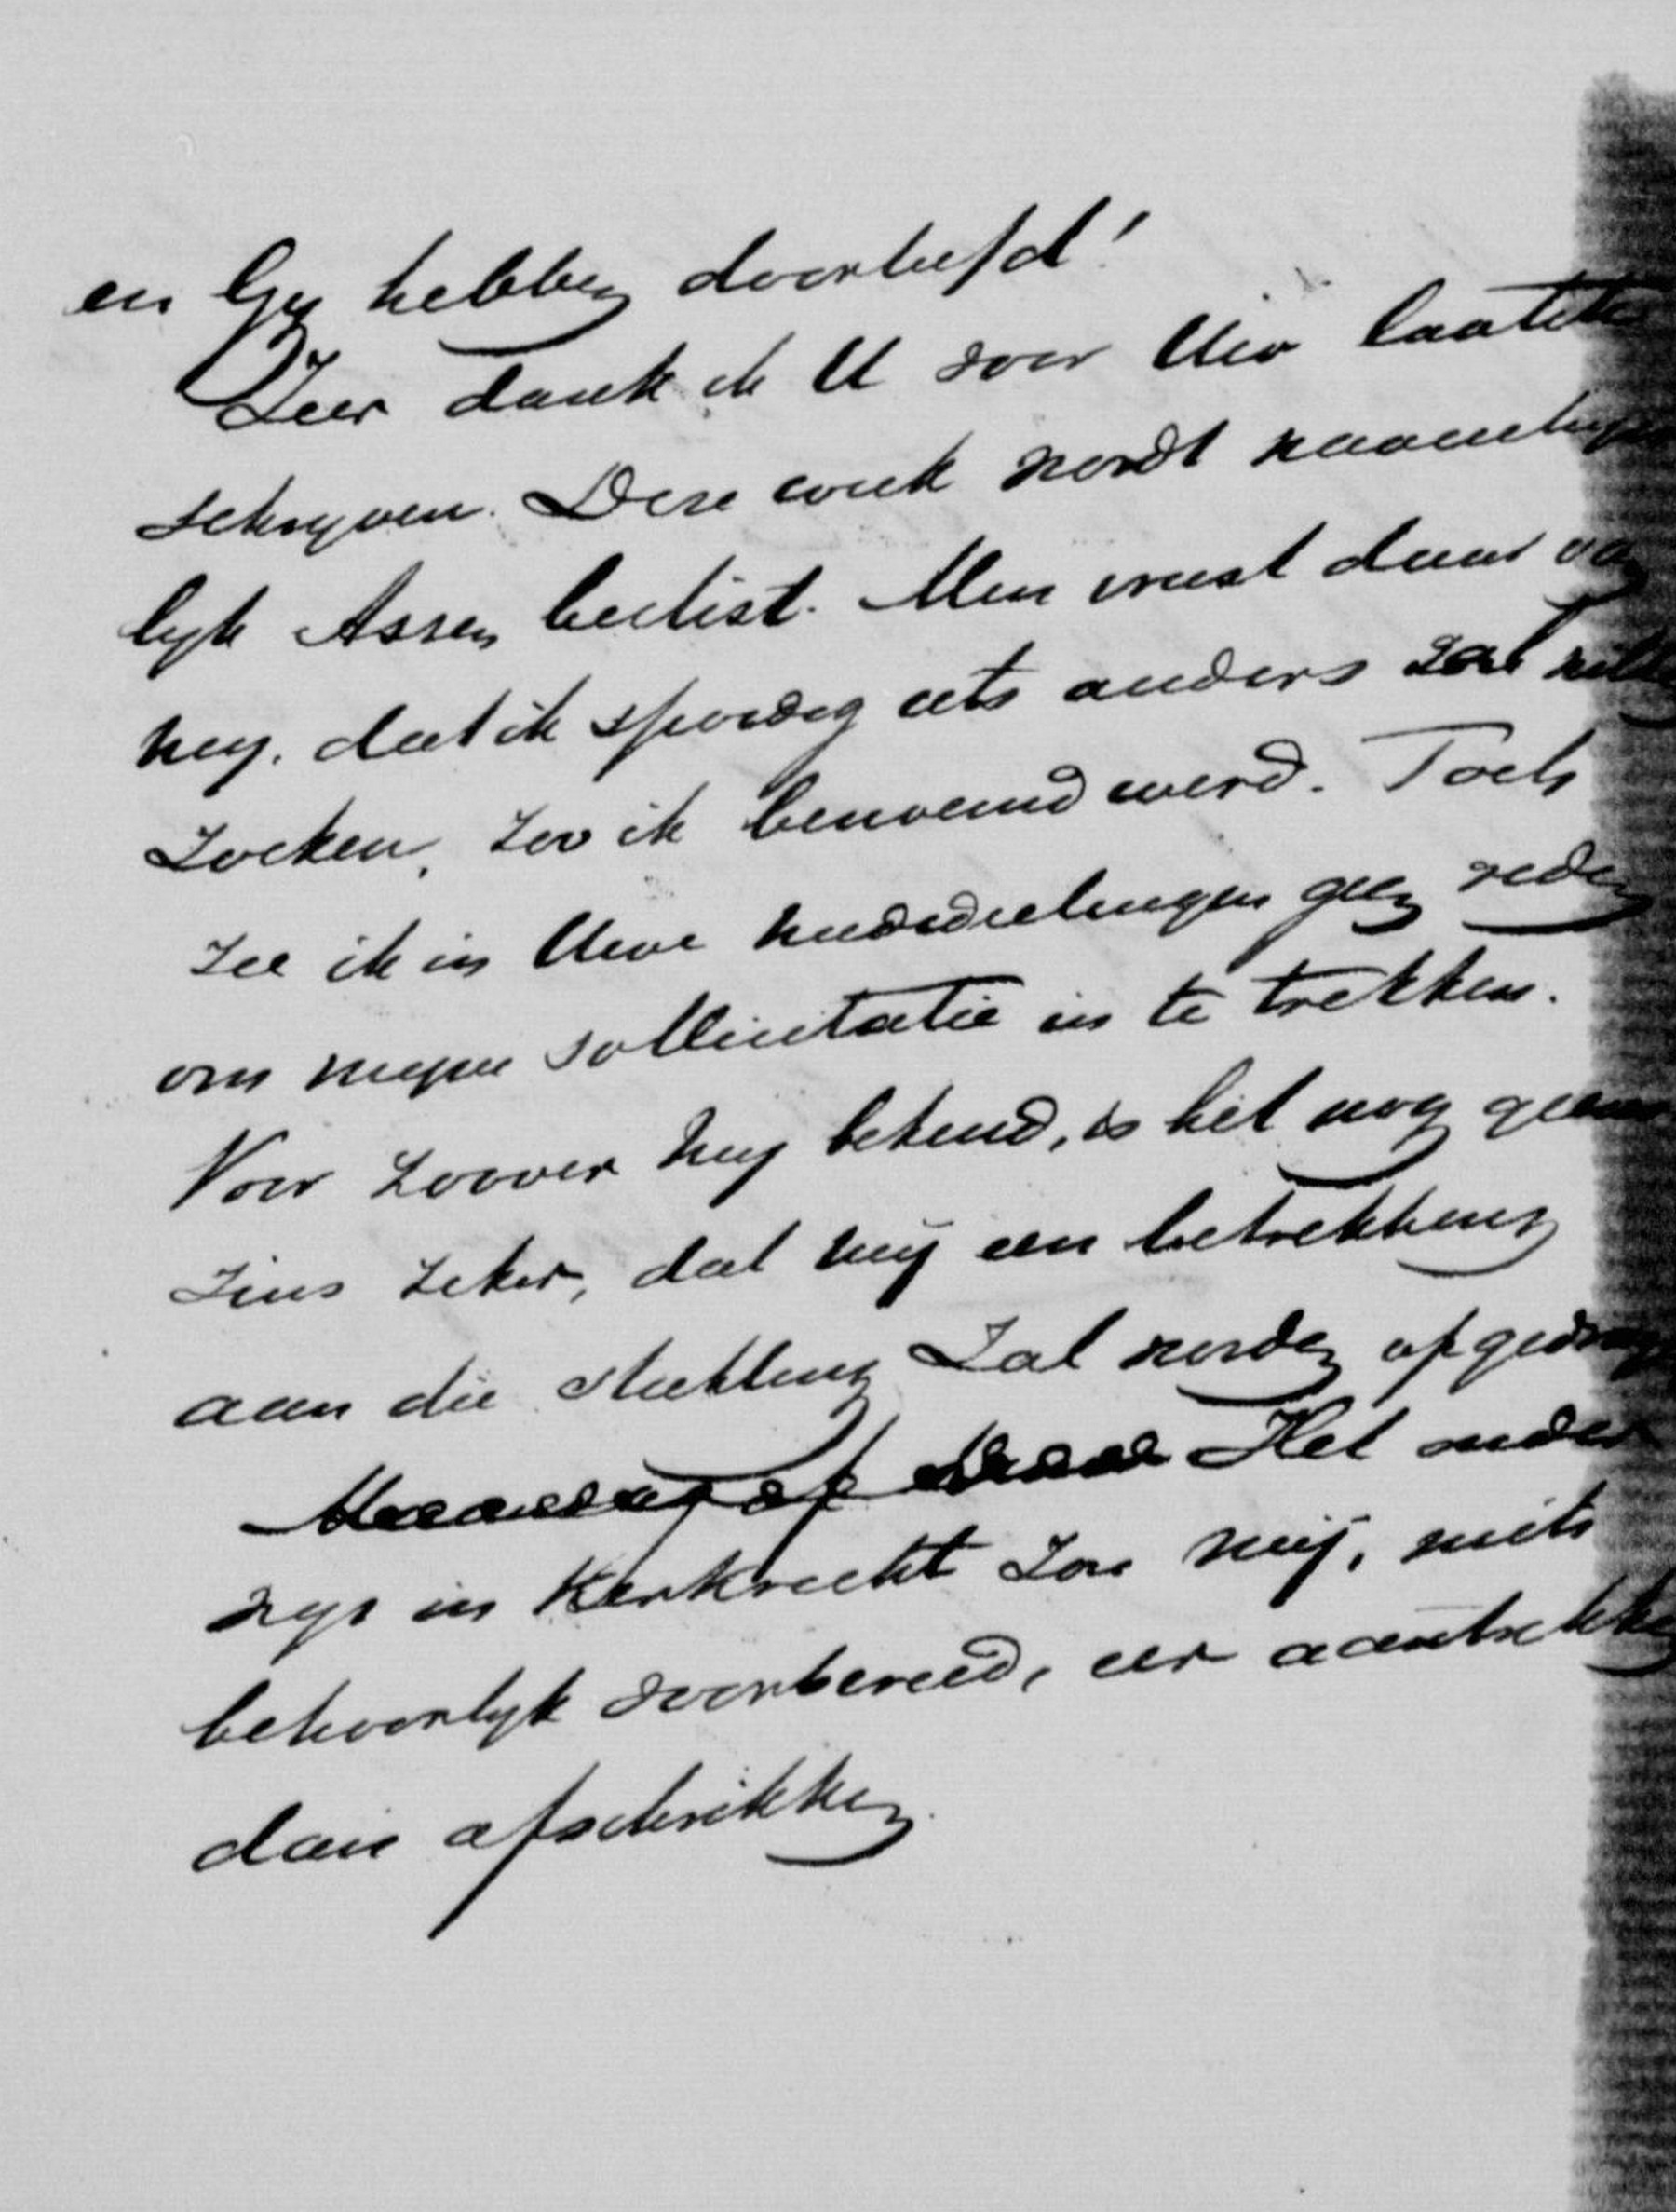 en Gij hebben doorleefd!
Zeer dank ik U voor Uw laatste
schrijven. Deze week wordt waarschijn
lijk Assen beslist. Men vreest daar van
mij, dat ik spoedig iets anders zal willen
zoeken, zoo ik benoemd werd. Toch
zee ik in Uwe mededeelingen geen reden
om mijne sollicitatie in te trekken.
Voor zoover mij bekend, is het nog geens
zins zeker, dat mij een betrekking
aan die stichting zal worden opgedragen
Het onder
wijs in Kerkrecht zou mij, mits
behoorlijk voorbereid, eer aantrekken
dan afschrikken.